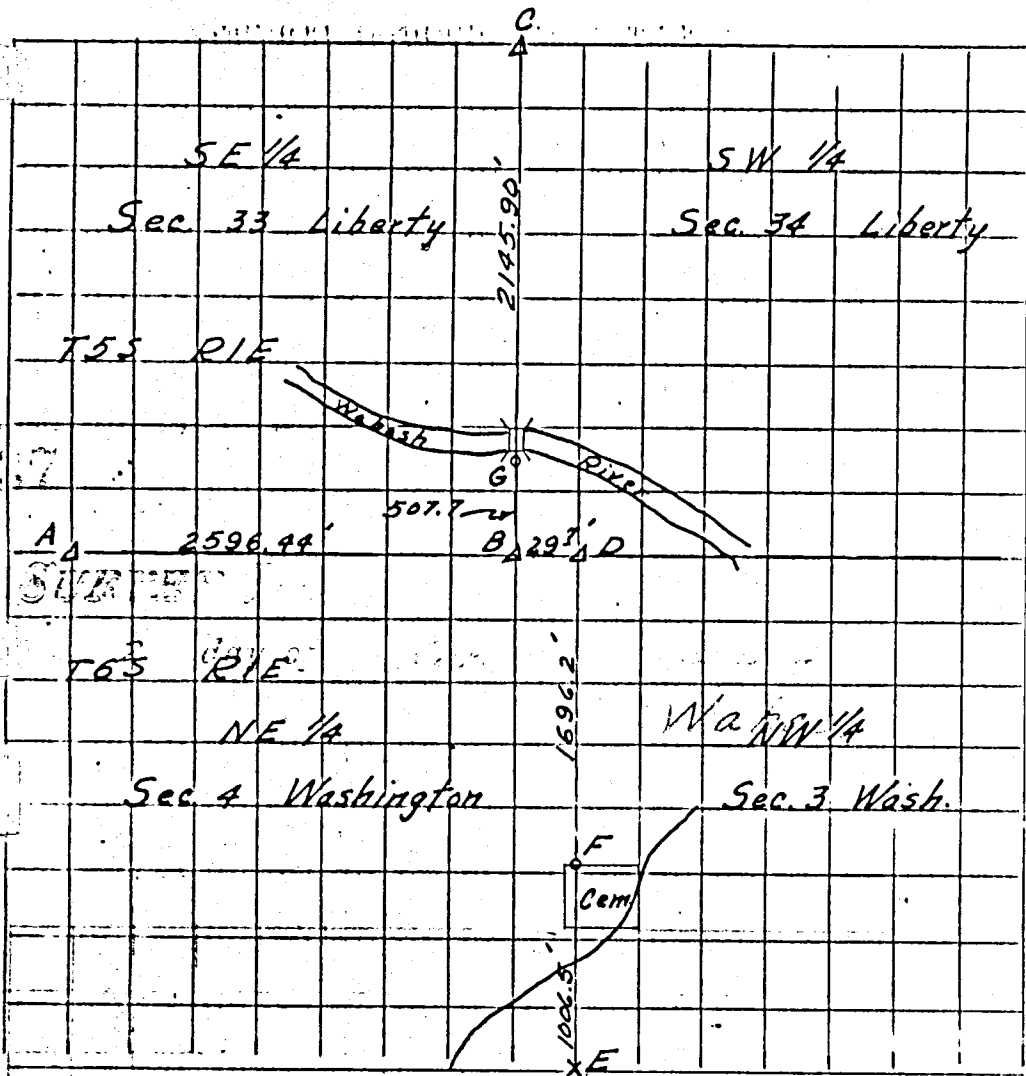 C.
SE 1/4
SW 1/4
2145.90'
Sec. 33 Liberty
Sec. 34 Liberty
T5S R1E
Wabash
River
G
507.7
A
2596.44'
B
293'
D
T6S R1E
1696.2'
NE 1/4
Wa NW 1/4
Sec 4 Washington
Sec. 3 Wash.
F
Cem
1006.5'
E